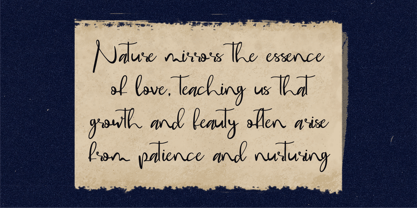 Nature mirrors the essence
of love, teaching us that
growth and beauty often arise
from patience and nurturing